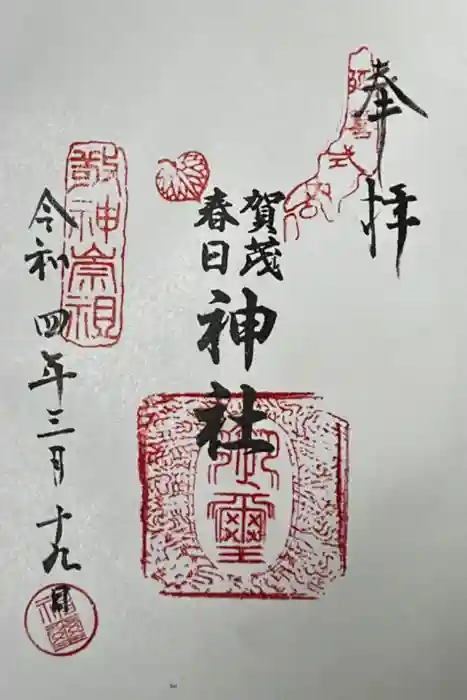 奉拝
賀茂
春日
神社
令和四年三月十九日
敬神崇祖